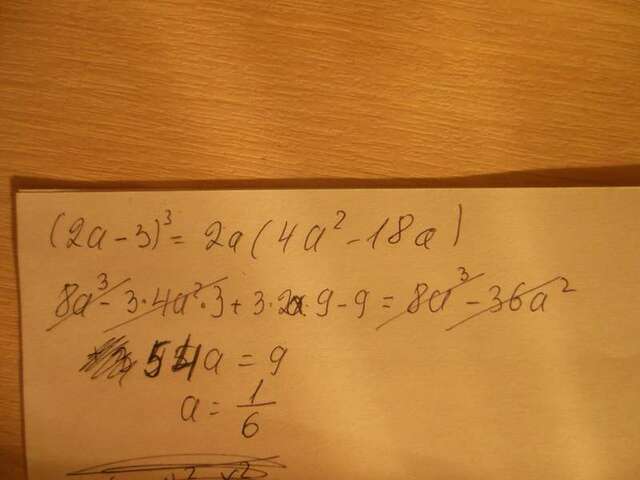 (2a - 3)³ = 2a (4a² - 18a)
8a³ - 3·4a²·3 + 3·2a·9 - 9 = 8a³ - 36a²
54a = 9
a = 1/6